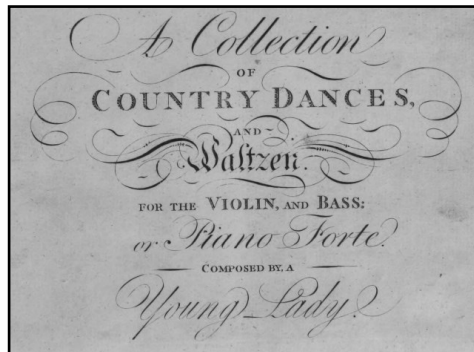 A Collection
OF
COUNTRY DANCES,
AND
Waltzen.
FOR THE VIOLIN, AND BASS:
or Piano Forte.
COMPOSED BY, A
Young Lady.